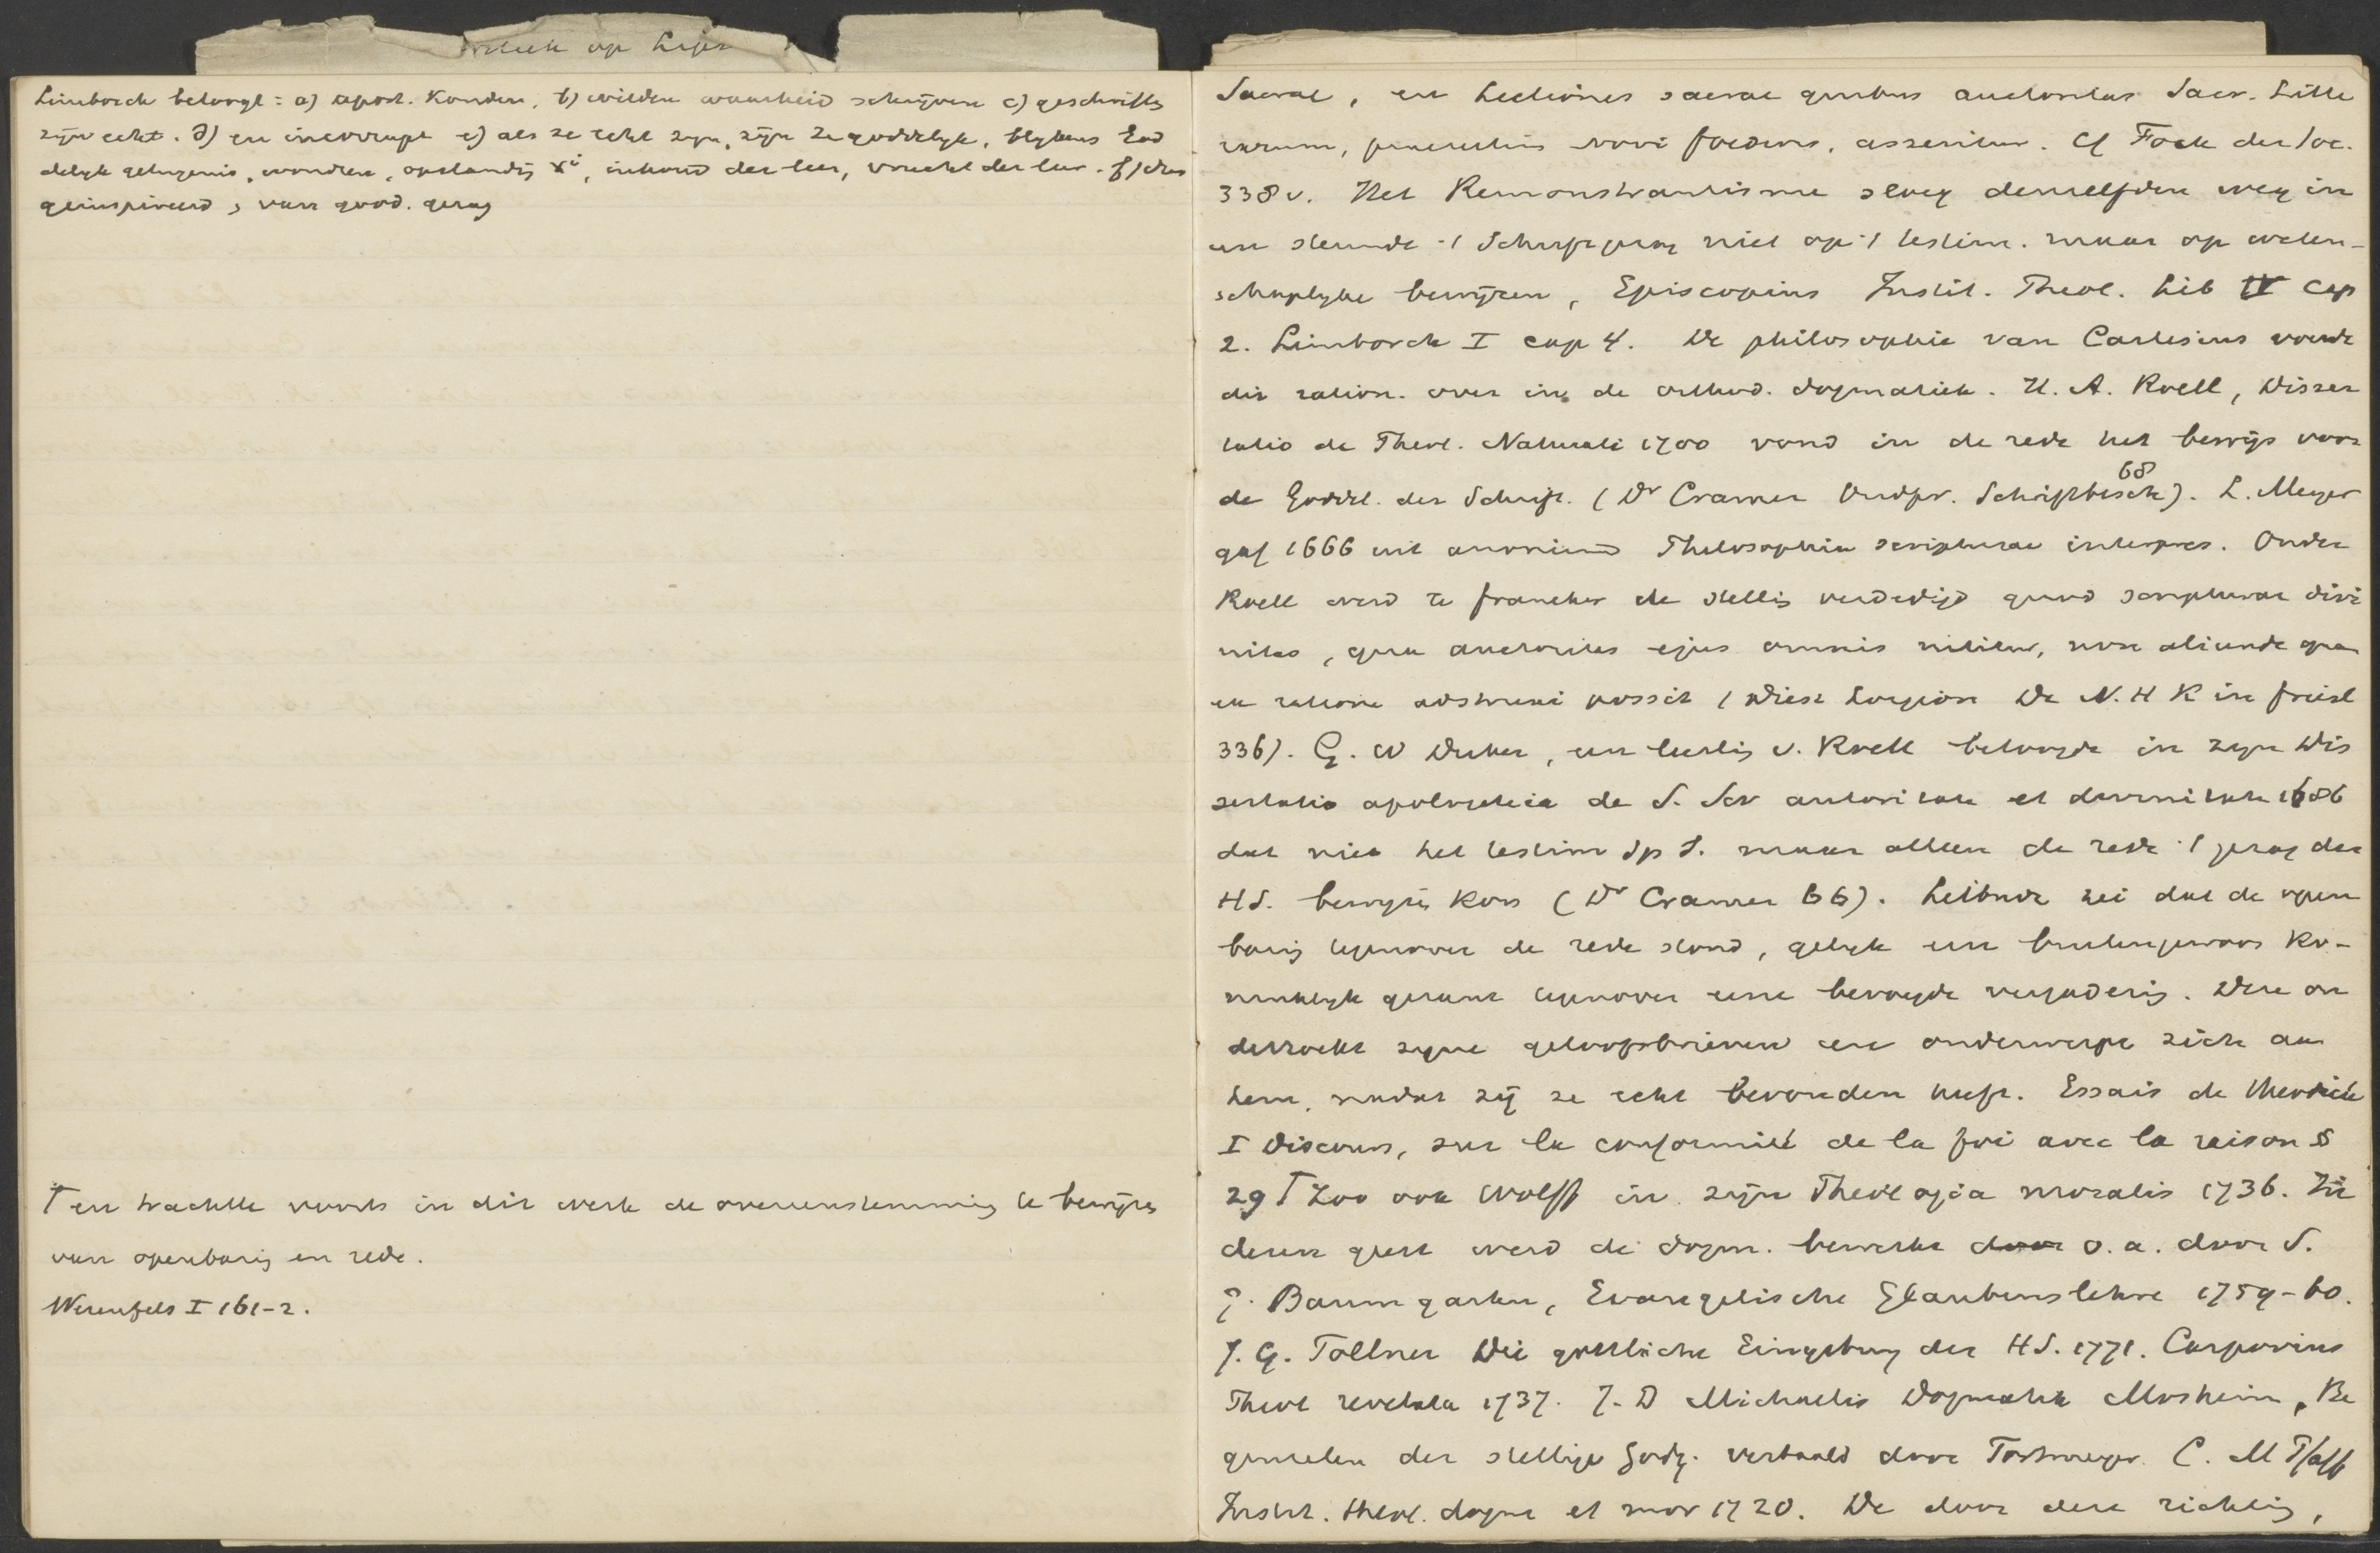 op
Limborch betoogt: a) apost. konden, b) wilden waarheid schrijven c) geschriften
zijn echt. d) en incorrupt e) als ze echt zyn, zijn ze goddelyk, blykens God
delyk getuigenis, wonderen, opstandig Xi, inhoud der leer, vrucht der leer. f) dus
geinspireerd, van godd. gezag
T en trachtte voorts in dit werk de overeenstemming te bewijzen
van openbaring en rede.
Werenfels I 161-2.
Sacrae, en Lectiones sacrae quibus auctoritas Sacr. Litte
rarum, praesertim novi foederis, asseritur. Cf Fock der Soc.
338 v. Het Remonstrantisme sloeg denzelfden weg in
en steunde 't Schriftgezag niet op 't testim. maar op weten-
schaplyke bewijzen, Episcopius Instit. Theol. Lib IV cap
2. Limborch I cap 4. De philosophie van Cartesius voerde
dit ration. over in de orthod. dogmatiek. H. A. Roell, Disser
tatio de Theol. Naturali 1700 vond in de rede het bewijs voor
de Goddel. der Schrift. (Dr Cramer Oudpr. Schriftbesch 68). L. Meyer
gaf 1666 uit anoniem Philosophia scripturae interpres. Onder
Roell werd te Franeker de stelling verdedigd quod scripturae divi
nitas, qua auctoritas ejus omnis nititur, non aliunde quam
ex ratione adstrui possit (Diest Lorgion De N. H K in Friesl
336). G. W Duker, een leerling v. Roell betoogde in zyn Dis
sertatio apologetica de S. Scr autoritate et divinitate 1686
dat niet het testim Sp S. maar alleen de rede 't gezag der
HS. bewyzen kon (Dr Cramer 66). Leibniz zei dat de open
baring tegenover de rede stond, gelyk een buitengewoon ko-
ninklyk gezant tegenover eene bevoegde vergadering. Deze on
derzoekt zyne geloofsbrieven en onderwerpt zich aan
hem, nadat zij ze echt bevonden heeft. Essais de theodicée
I Discours, sur la conformité de la foi avec la raison §
29 T Zoo ook Wolff in zijn Theologia moralis 1736. In
dezen geest werd de dogm. bewerkt door o. a. door S.
J. Baumgarten, Evangelische Glaubenslehre 1759-60.
J. G. Tollner Die göttliche Eingebung der HS. 1771. Carpovius
Theol revelata 1737. J. D Michaelis Dogmatik Mosheim, Be
ginselen der stellige Godg. vertaald door C. M Pfaff
Instit. theol. dogm et mor 1720. De door deze richting,